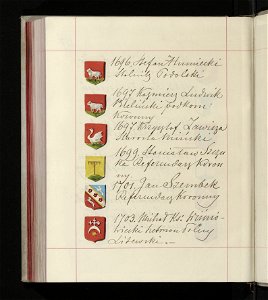 1696 Stefan Humiecki
Stolnik Podolski
1697 Kazimierz Ludwik
Bieliński Podkom:
Koronny
1697. Krzysztof Zawisza
Starosta Miński
1699 Stanisław Szczu-
ka Referendarz Koron
ny
1701. Jan Szembek
Referendarz Koronny
1703. Michał Ks: Wiśnio-
wiecki Hetman Polny
Litewski.—